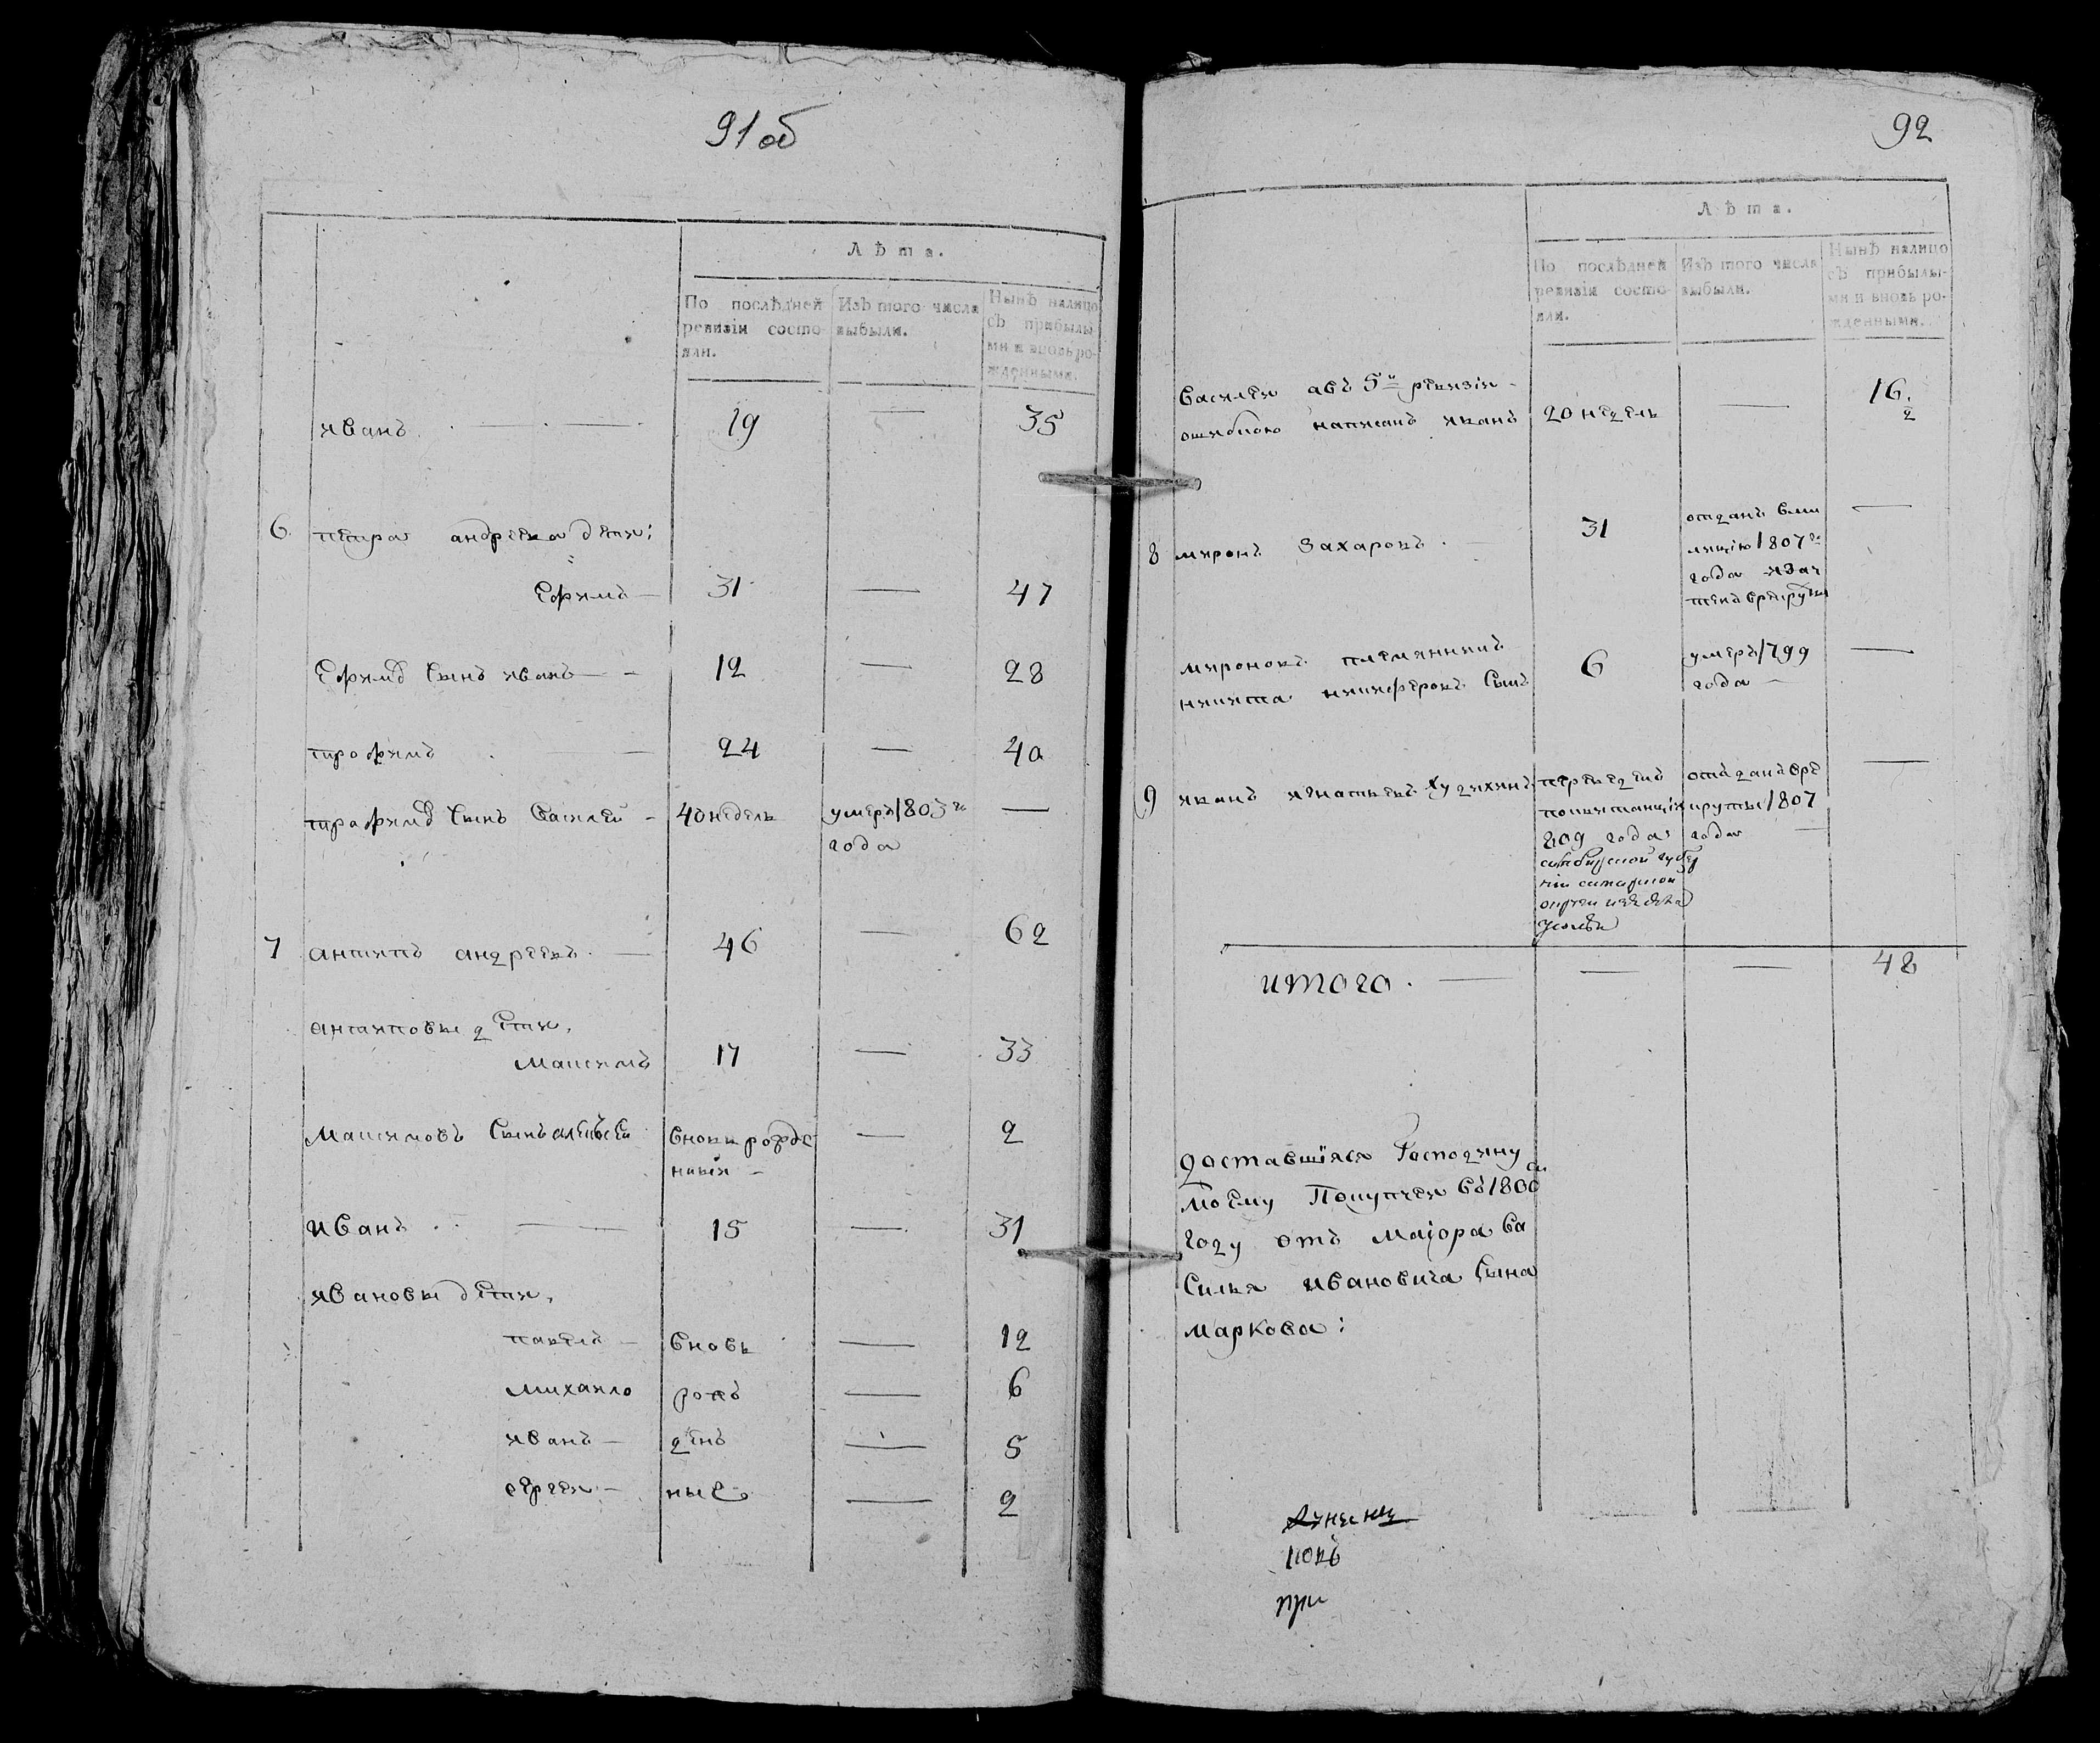 91об
Лѣта.
По послѣдней
ревизіи состо-
яли.
Изъ того числа
выбыли.
Нынѣ налицо
съ прибылы-
ми и вновь ро-
жденными.
иванъ 19 — 35
6 петра андреева дети:
Ефимъ — 31 — 47
Ефимъ Сынъ иванъ — 12 — 28
трофимъ — 24 — 40
трофимъ Сынъ Василей — 40 недель умеръ 1803го —
года
7 антипъ андреевъ. — 46 — 62
антиповы дети,
Максимъ 17 — 33
Максимовъ Сынъ алексей вновь рожде — 2
ный
иванъ — 15 — 31
ивановы дети,
павелъ — вновь — 12
михаило рож — 6
иванъ — ден — 5
сергеи — ные — 2
92
Лѣта.
По послѣдней
ревизіи состо-
яли.
Изъ того числа
выбыли.
Нынѣ налицо
съ прибылы-
ми и вновь ро-
жденными.
Василеи а въ 5й ревизіи
ошибкою написанъ иванъ 20 недель — 16.
2
8 миронъ Захаровъ. 31 отданъ в ми —
лицію 1807го
года и зач
тенъ в рекруты
мироновъ племянникъ
никита никифоровъ Сынъ 6 умеръ 1799 —
года —
9 иванъ игнатьевъ отданъ в ре —
круты 1807
года —
809 года
симбирской губер
ніи самарской
итого. — — — 48
доставшіяся Господину
моему Покупкеи въ 1800
году отъ Маіора Ва
Силья ивановича Сына
маркова:
при